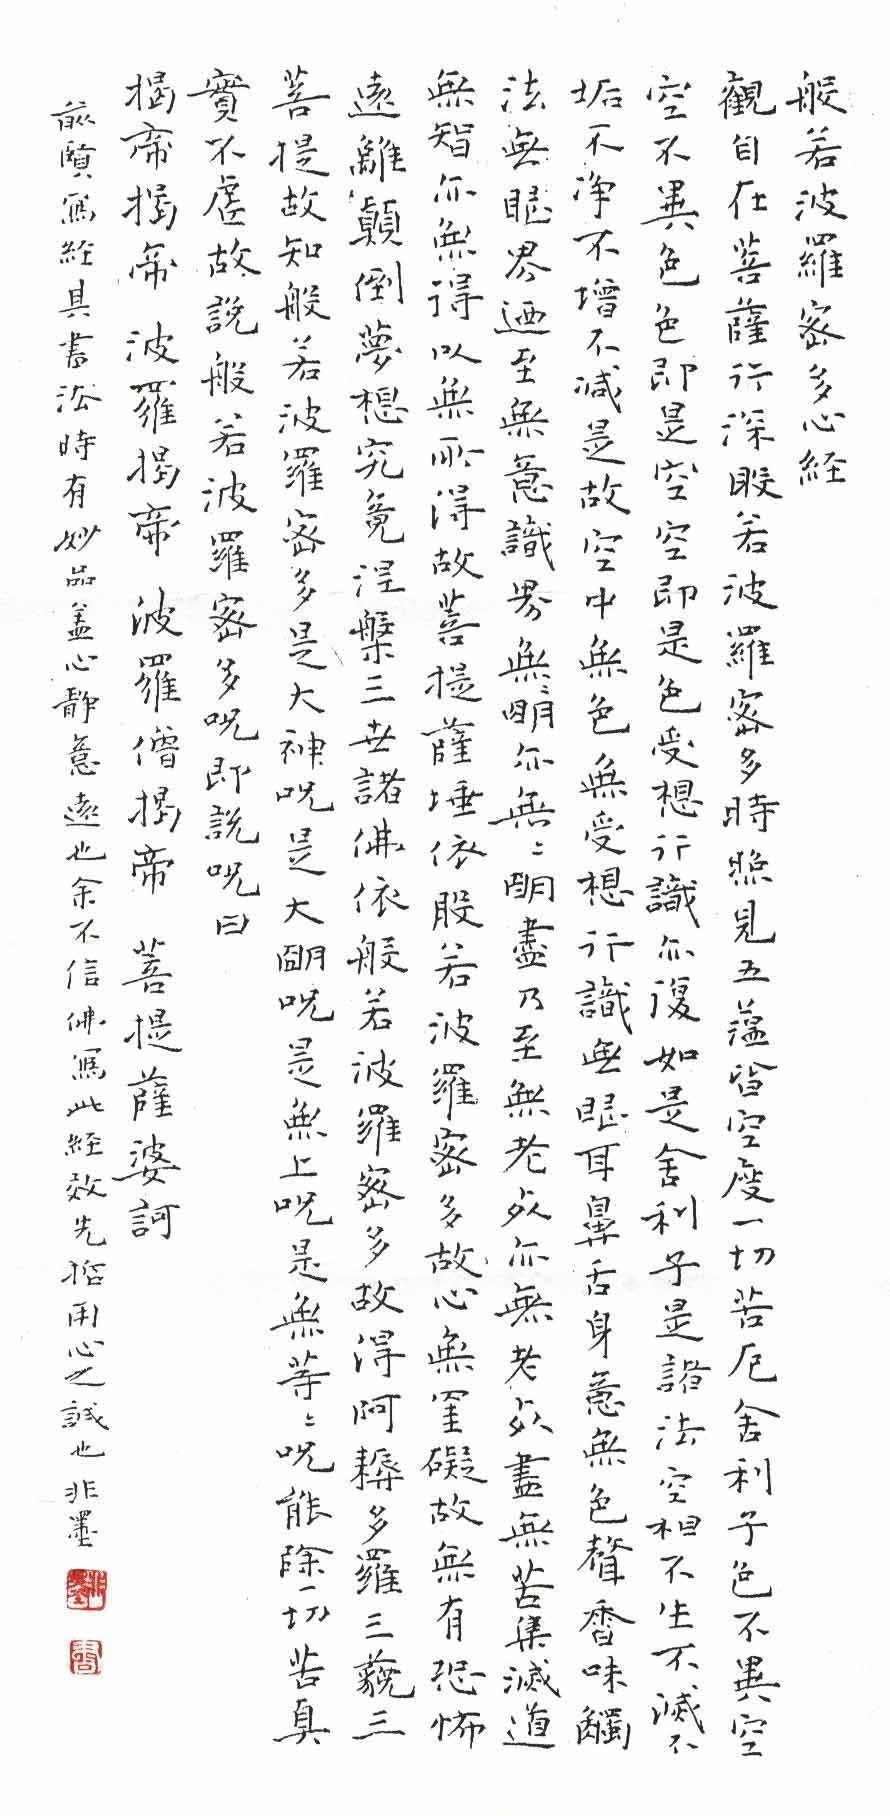 般若波羅密多心経
觀自在菩薩行深般若波羅密多時照見五蘊皆空度一切苦厄舍利子色不異空
空不異色色即是空空即是色受想行識亦復如是舍利子是諸法空相不生不滅不
垢不净不增不减是故空中無色無受想行識無眼耳鼻舌身意無色聲香味觸
法無眼界廼至無意識界無〻明亦無〻明盡乃至無老死亦無老死盡無苦集滅道
無智亦無得以無所得故菩提薩埵依般若波羅密多故心無罣礙故無有恐怖
遠離顛倒夢想究竟涅槃三世諸佛依般若波羅密多故得阿耨多羅三藐三
菩提故知般若波羅密多是大神呪是大明呪是無上呪是無等〻呪能除一切苦真
實不虛故說般若波羅密多呪即說呪曰
揭帝揭帝 波羅揭帝 波羅僧揭帝 菩提薩婆訶
前賢寫経具書法時有妙品盖心靜意遠也余不信佛寫此経效先哲用心之誠也非墨
非墨
書